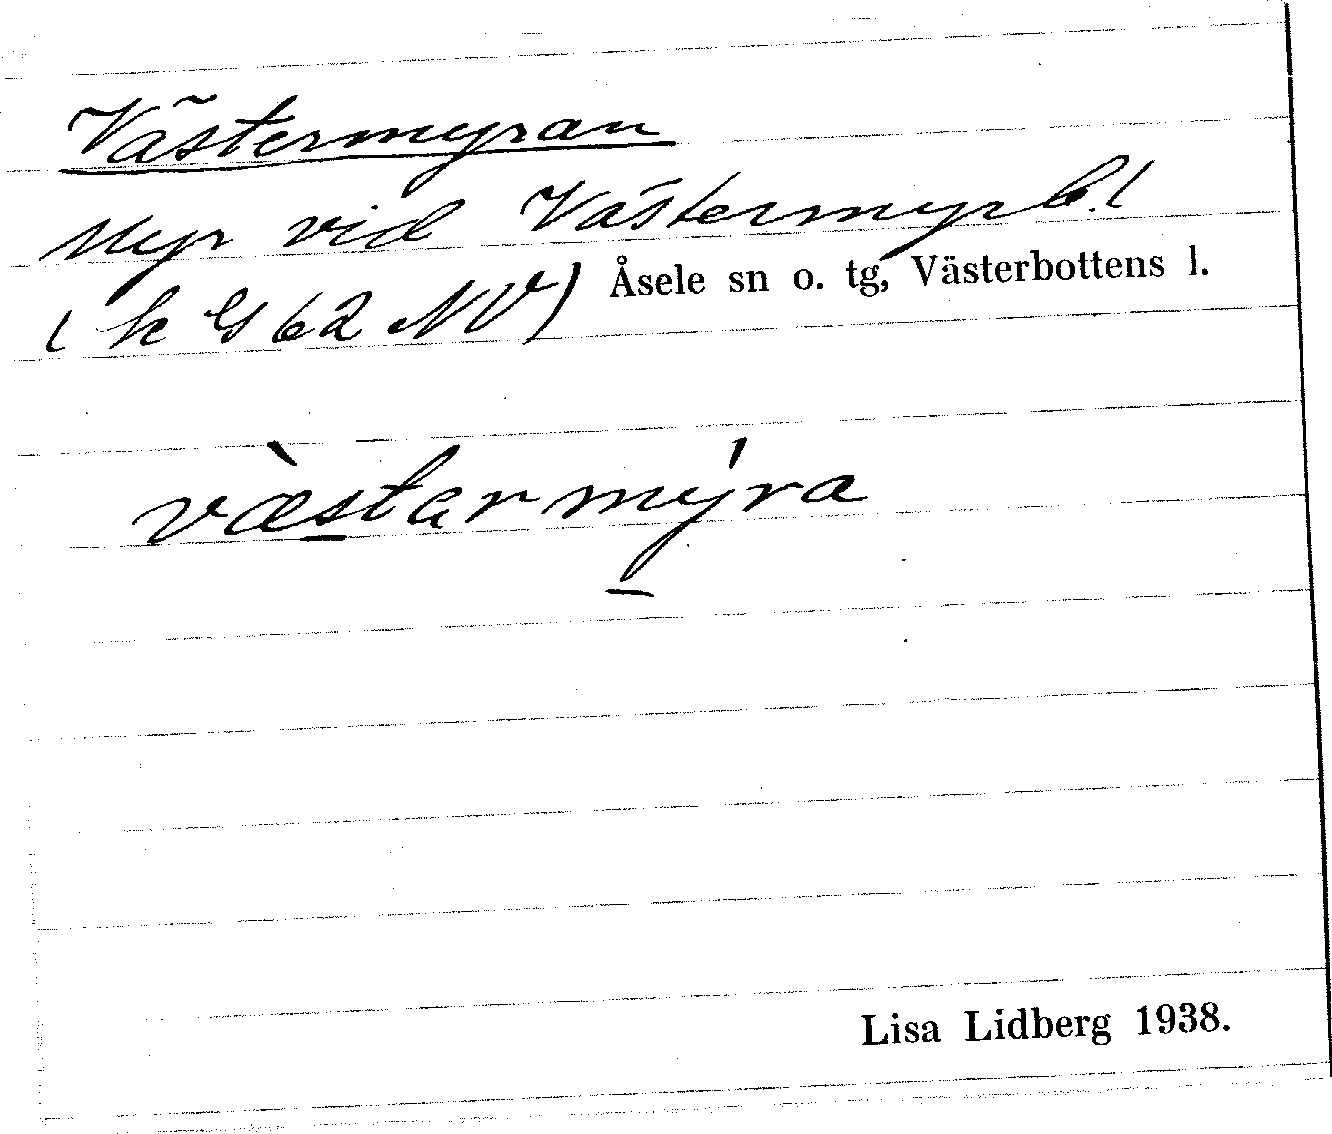 Västermyran
Myr vid Västermyrb.
(k G 62 NV) Åsele sn o. tg, Västerbottens l.
vὰstarmýra
Lisa Lidberg 1938.